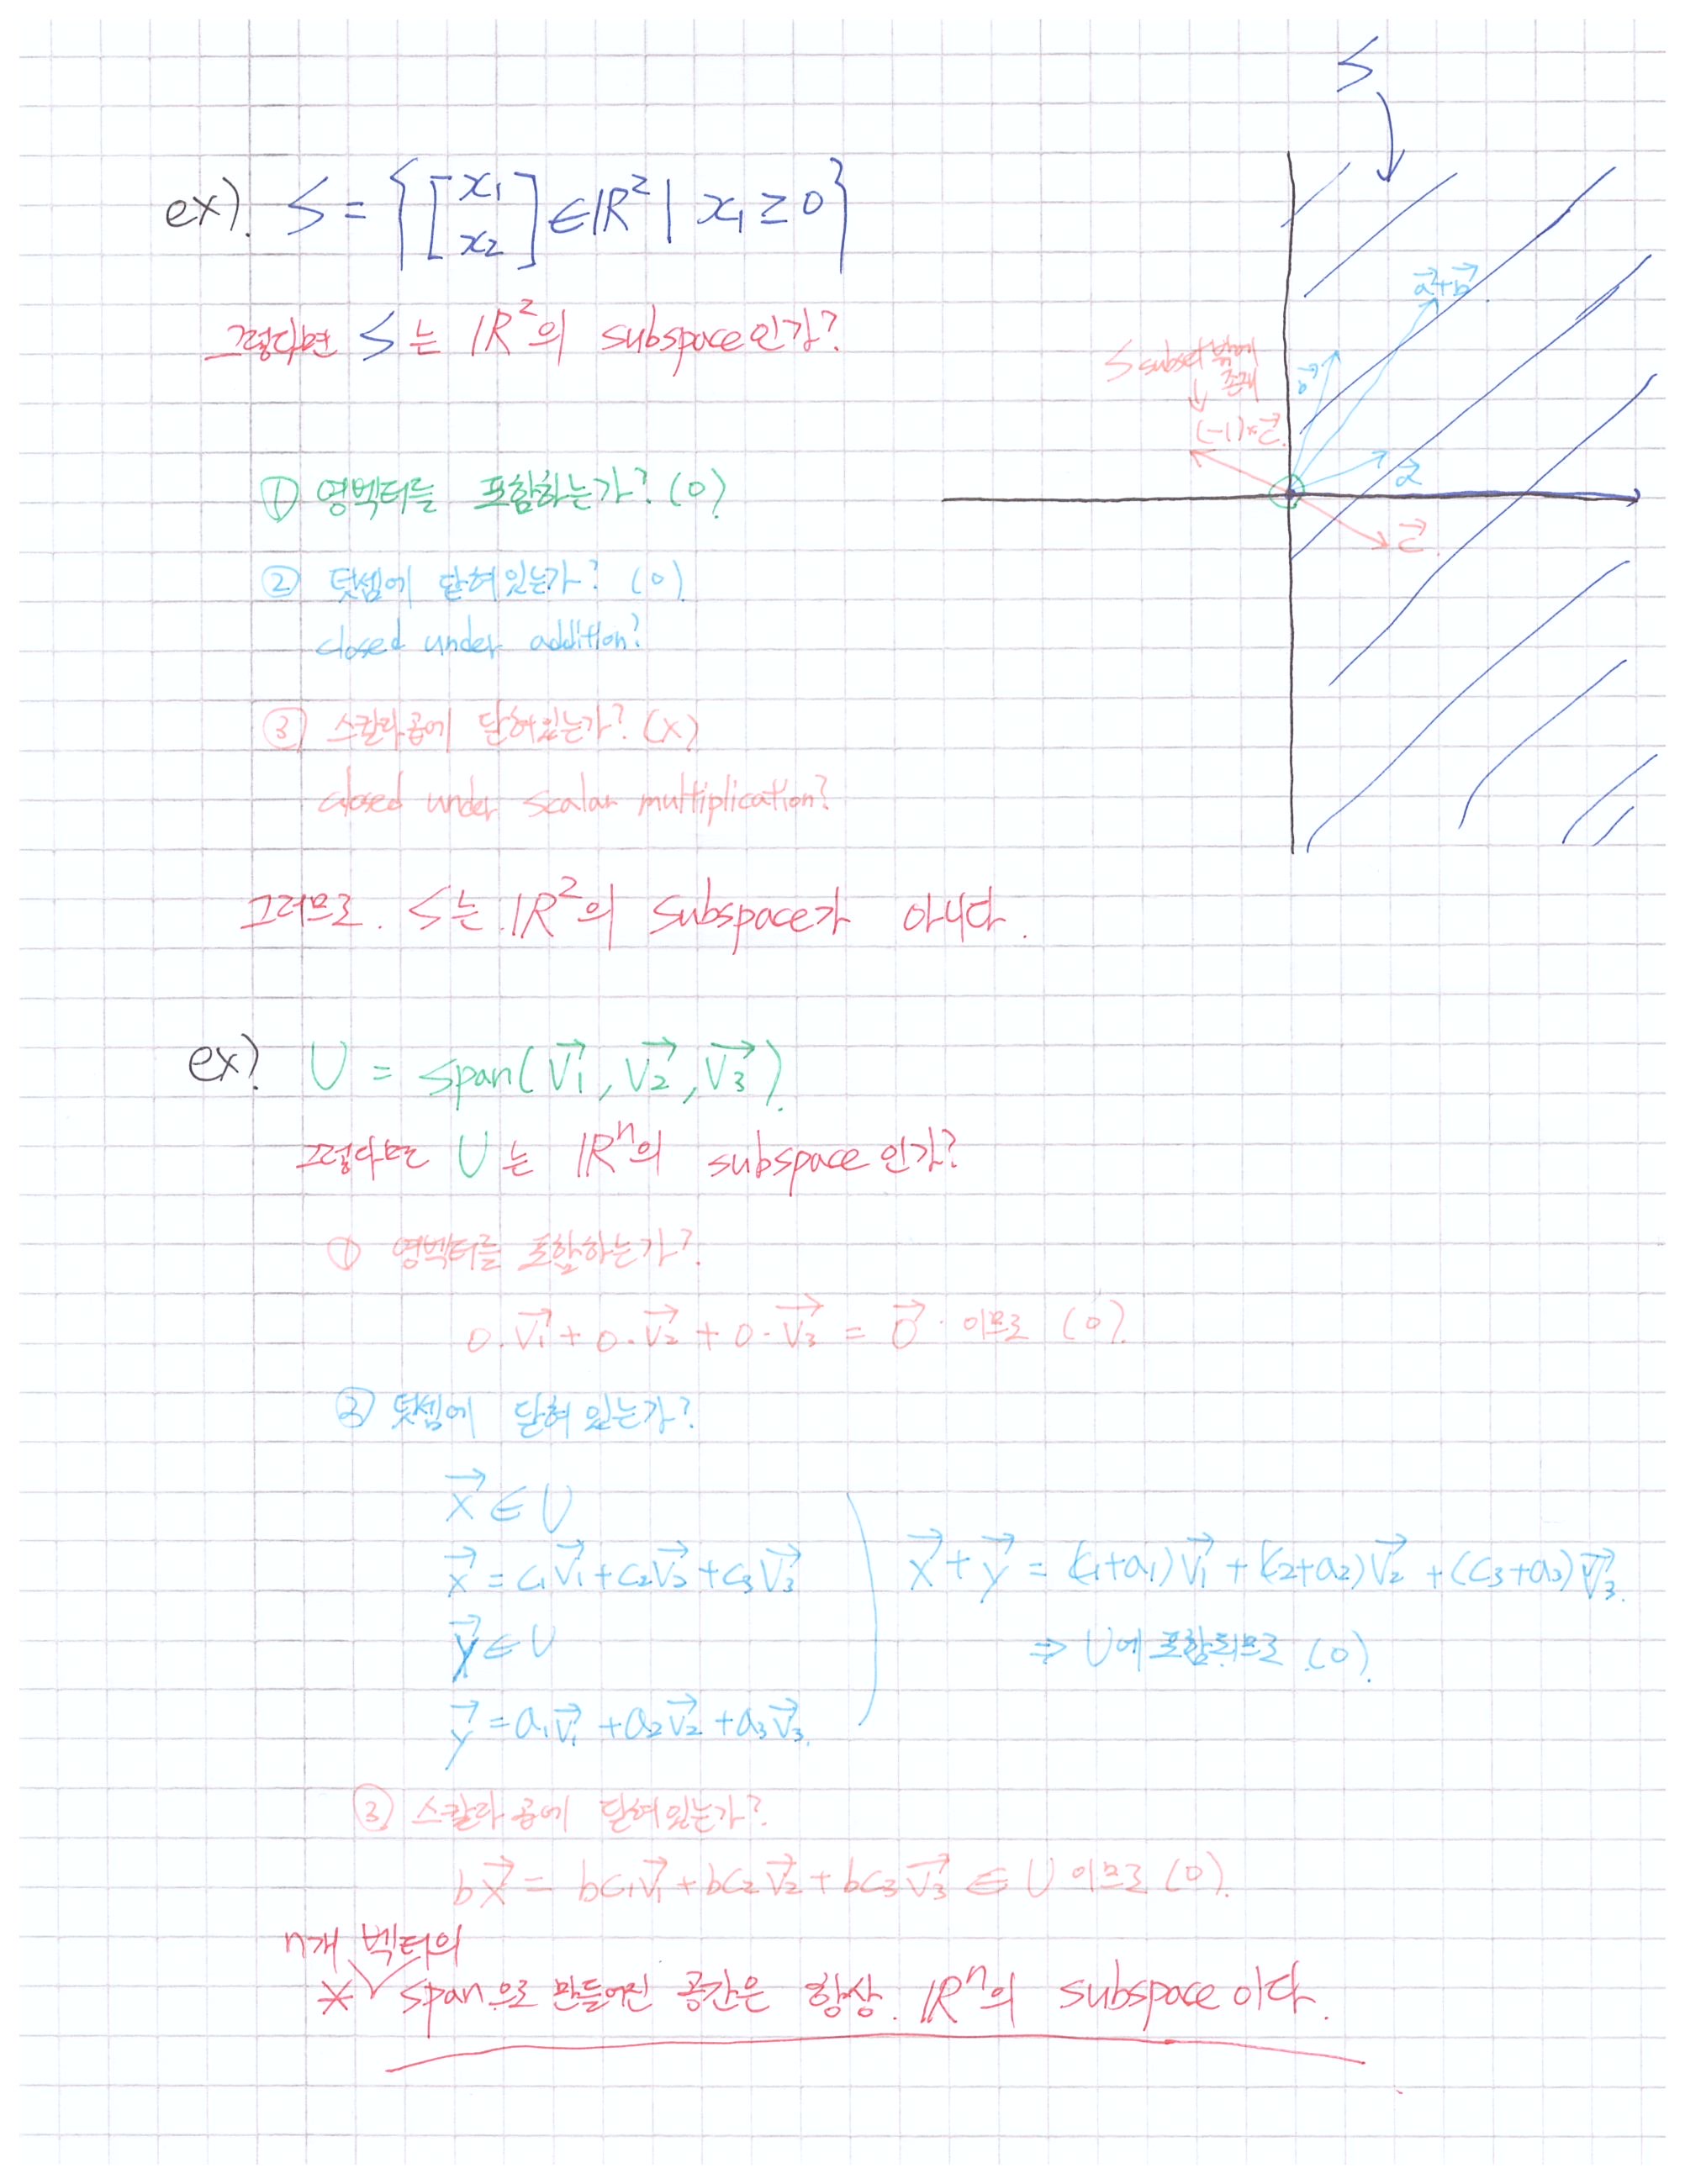 S
ex). S = { [x₁ x₂] ∈ ℝ² | x₁ ≥ 0 }
그렇다면 S는 ℝ²의 subspace인가?
a⃗+b⃗
b⃗
S subset 밖에
존재
(-1)*c⃗.
a⃗
c⃗.
① 영벡터를 포함하는가? (O)
② 덧셈에 닫혀있는가? (O)
closed under addition?
③ 스칼라곱에 닫혀있는가? (X)
closed under scalar multiplication?
그러므로. S는 ℝ²의 subspace가 아니다.
ex) U = span(v₁⃗, v₂⃗, v₃⃗).
그렇다면 U는 ℝⁿ의 subspace인가?
① 영벡터를 포함하는가?
0·v₁⃗ + 0·v₂⃗ + 0·v₃⃗ = 0⃗. 이므로 (O).
② 덧셈에 닫혀있는가?
x⃗ ∈ U
x⃗ = c₁v₁⃗ + c₂v₂⃗ + c₃v₃⃗
y⃗ ∈ U
y⃗ = a₁v₁⃗ + a₂v₂⃗ + a₃v₃⃗.
x⃗ + y⃗ = (c₁+a₁)v₁⃗ + (c₂+a₂)v₂⃗ + (c₃+a₃)v₃⃗.
⇒ U에 포함되므로 (O).
③ 스칼라곱에 닫혀있는가?
bx⃗ = bc₁v₁⃗ + bc₂v₂⃗ + bc₃v₃⃗ ∈ U 이므로 (O).
n개 벡터의
* span으로 만들어진 공간은 항상. ℝⁿ의 subspace이다.